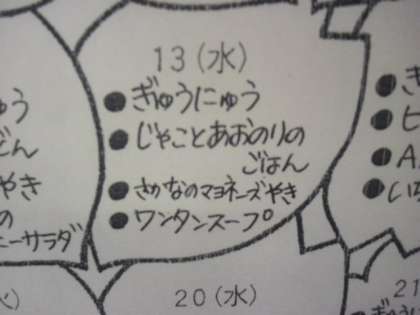 13(水)
●ぎゅうにゅう
●じゃことあおのりの
ごはん
●さかなのマヨネーズやき
●ワンタンスープ
ゅう
どん
やき
の
ニーサラダ
●き
●ヒ
●A
●いち
(火)
20(水)
21